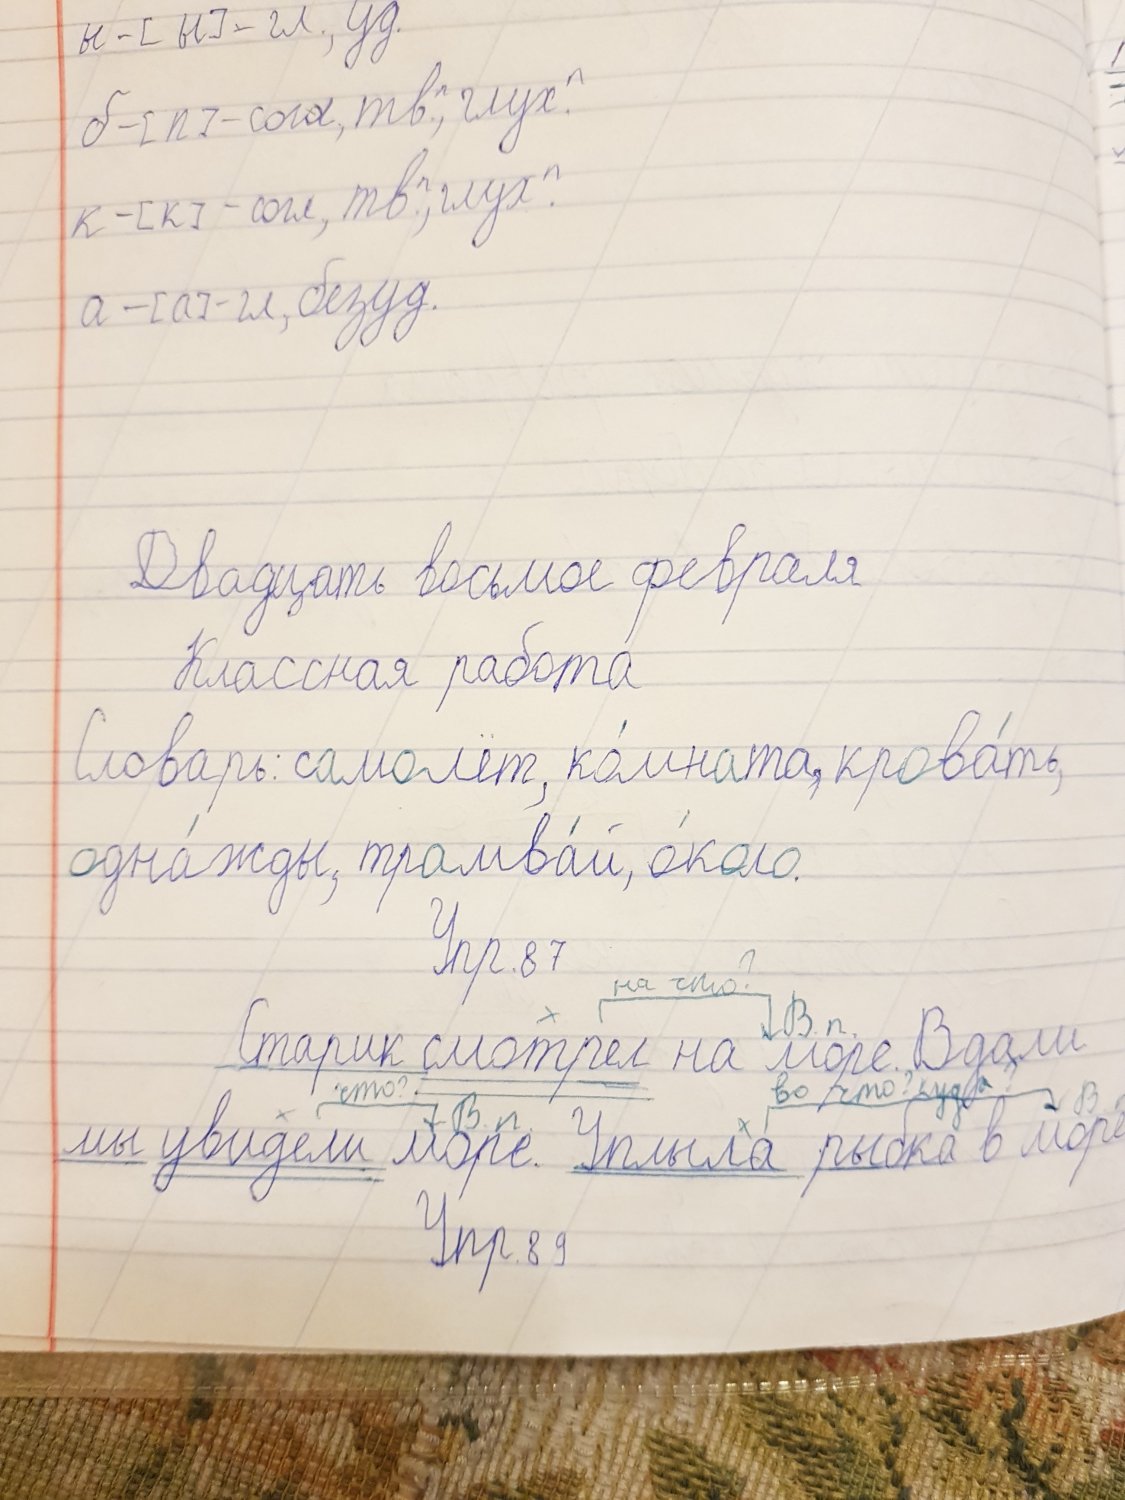 ы-[ы]-гл., уд.
б-[п]-согл, тв.п, глух.п
к-[к]-согл, тв.п, глух.п
а-[а]-гл, безуд.
Двадцать восьмое февраля
Классная работа
Словарь: самолёт, ко́мната, крова́ть,
одна́жды, трамва́й, о́коло.
Упр. 87
на что?
х В.п.
Старик смотрел на море. Вдали
что? во что? куда?
х В.п. х В.
мы увидели море. Уплыла рыбка в море
Упр. 89